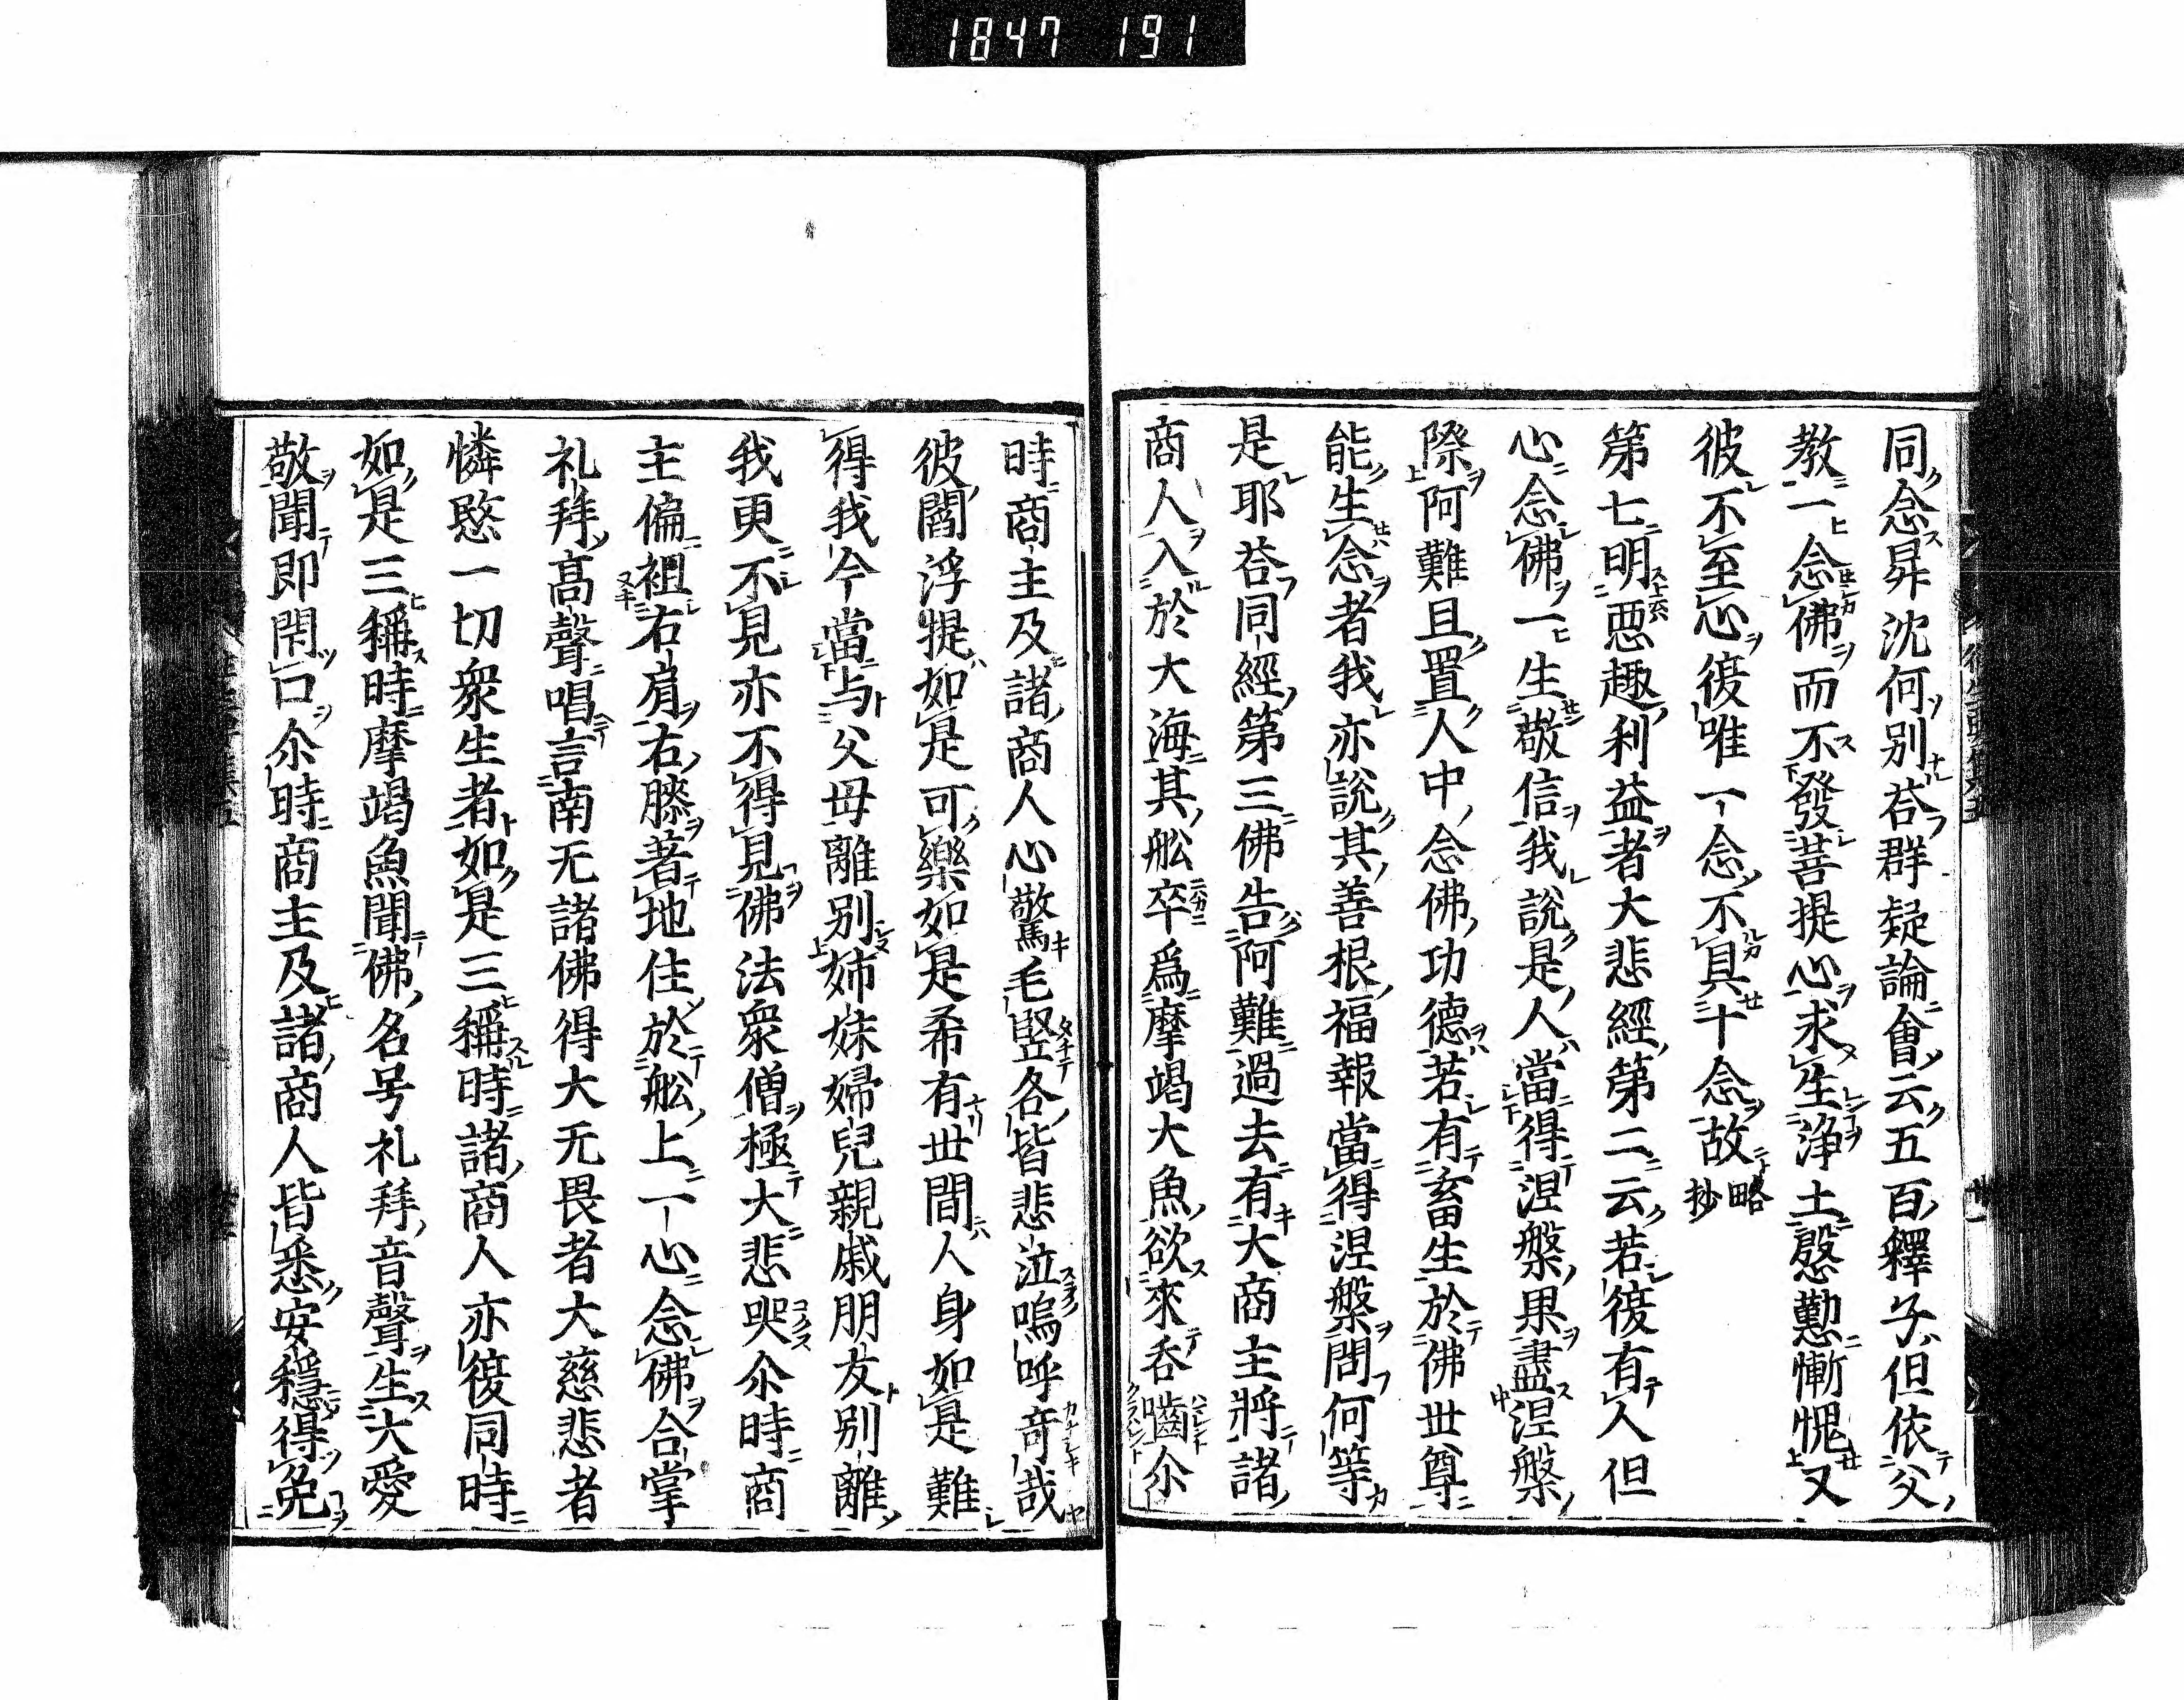 1847 191
同念昇沈何別荅群疑論會云五百釋子但依父
教一念佛而不發菩提心求生淨土慇懃慚愧又
彼不至心復唯一念不具十念故略抄
第七明悪趣利益者大悲經第二云若復有人但
心念佛一生敬信我說是人當得涅槃果盡涅槃
際阿難且置人中念佛功德若有畜生於佛世尊
能生念者我亦說其善根福報當得涅槃問何等
是耶荅同經第三佛告阿難過去有大商主將諸
商人入於大海其舩卒爲摩竭大魚欲來呑嚙尒
時商主及諸商人心驚毛竪各皆悲泣嗚呼奇哉
彼閻浮提如是可樂如是希有世間人身如是難
得我今當与父母離別姉妹婦兒親戚朋友別離
我更不見亦不得見佛法衆僧極大悲哭尒時商
主偏袒右肩右膝著地住於舩上一心念佛合掌
礼拜髙聲唱言南无諸佛得大无畏者大慈悲者
憐愍一切衆生者如是三稱時諸商人亦復同時
如是三稱時摩竭魚聞佛名号礼拜音聲生大愛
敬聞即閇口尒時商主及諸商人皆悉安穩得免